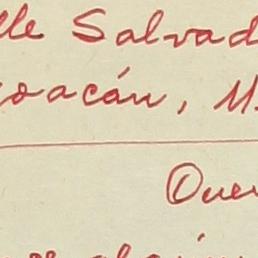 lle Salvad
oacán, M
Quer